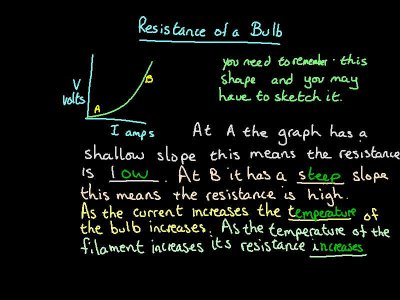 Resistance of a Bulb
you need to remember this
shape and you may
have to sketch it.
V
volts
B
A
I amps
At A the graph has a
shallow slope this means the resistance
is low. At B it has a steep slope
this means the resistance is high.
As the current increases the temperature of
the bulb increases. As the temperature of the
filament increases its resistance increases